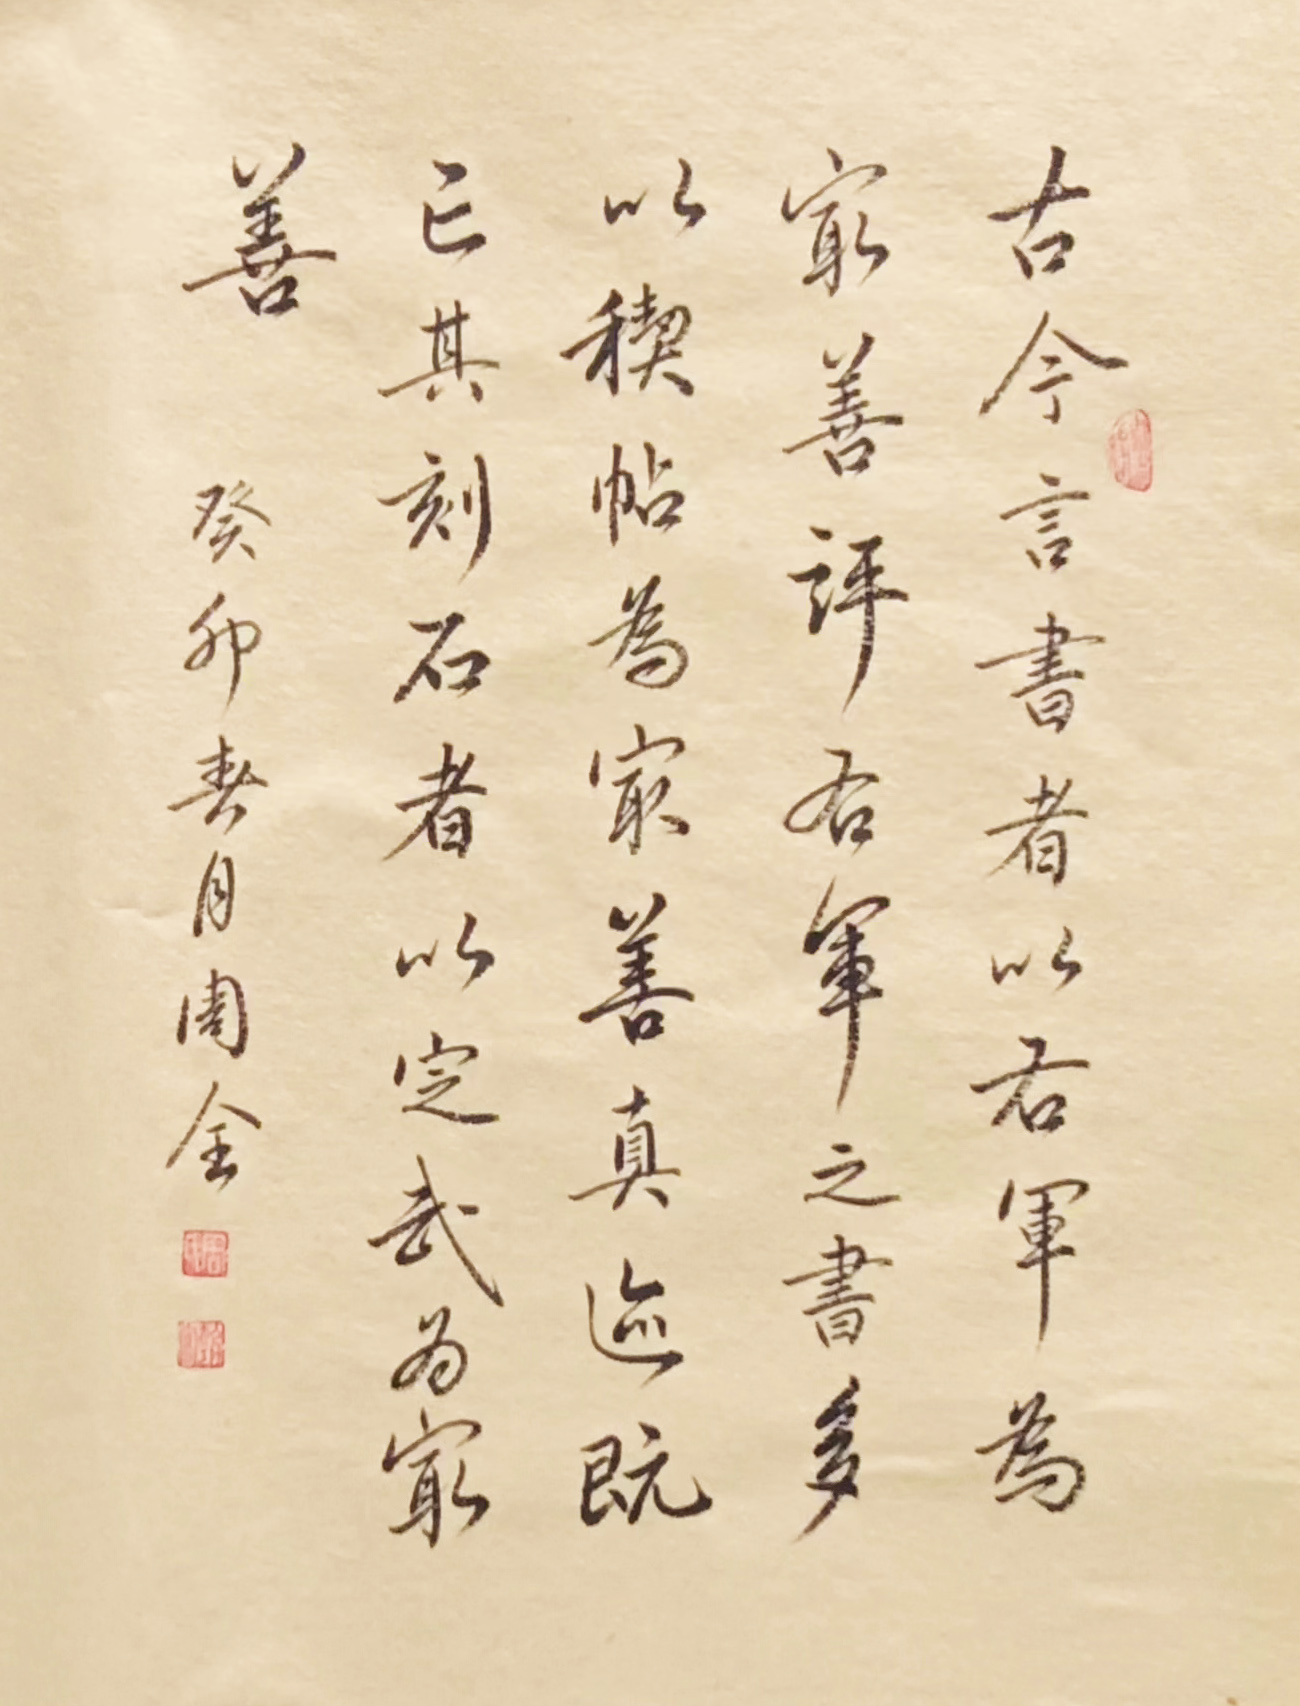 古今言書者以右軍為
冣善評右軍之書多
以稧帖為冣善真迹既
亡其刻石者以定武为冣
善
癸卯春月周全